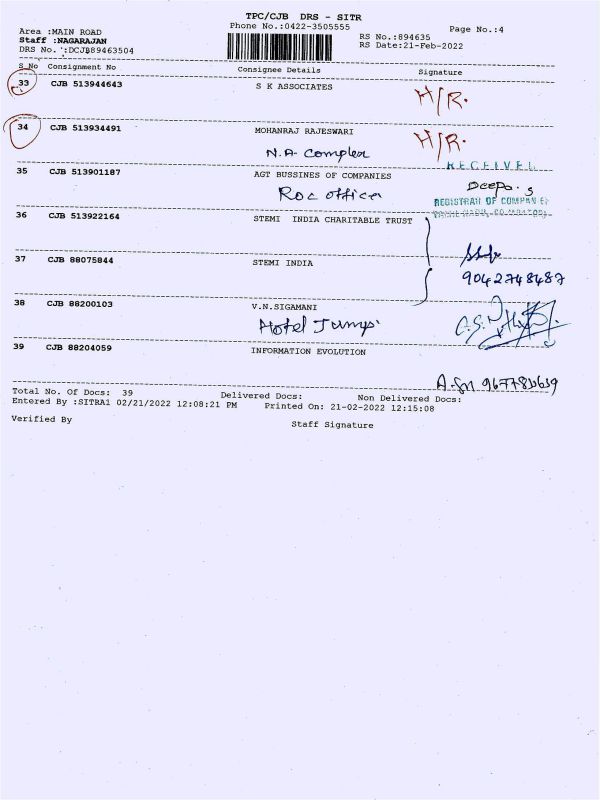 TPC/CJB DRS - SITR
Phone No.:0422-3505555
Page No.:4
Area :MAIN ROAD
Staff :NAGARAJAN
DRS No. :DCJB89463504
RS No.:894635
RS Date:21-Feb-2022
S_No Consignment No Consignee Details Signature
33 CJB 513944643 S K ASSOCIATES H/R.
34 CJB 513934491 MOHANRAJ RAJESWARI H/R.
N.A Complex
RECEIVED
35 CJB 513901187 AGT BUSSINES OF COMPANIES
Roc office Deepa. S
REGISTRAR OF COMPANIES
36 CJB 513922164 STEMI INDIA CHARITABLE TRUST
37 CJB 88075844 STEMI INDIA
9042748487
38 CJB 88200103 V.N.SIGAMANI
Hotel
39 CJB 88204059 INFORMATION EVOLUTION
Total No. Of Docs: 39 Delivered Docs: Non Delivered Docs:
Entered By :SITRA1 02/21/2022 12:08:21 PM Printed On: 21-02-2022 12:15:08
Verified By Staff Signature